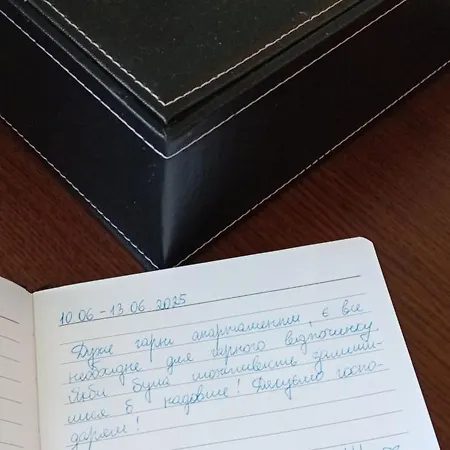 10.06 - 13.06 2025
Дуже гарні апартаменти, є все
необхідне для гарного відпочинку.
Якби була можливість залиши-
лися б надовше! Дякуємо госпо-
дарям!